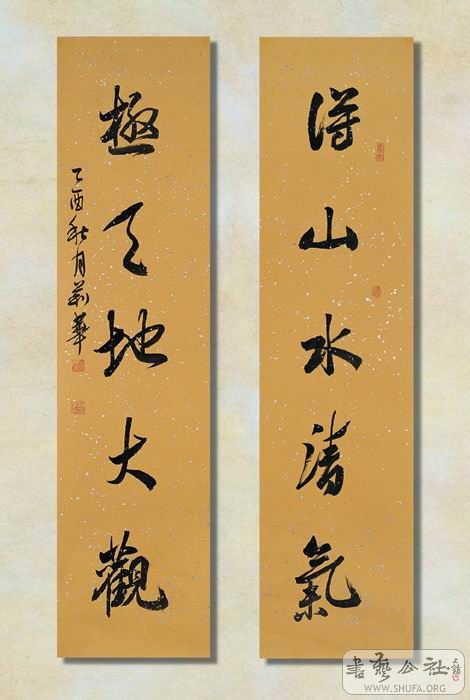 得山水清氣
極天地大觀
乙酉秋月莉華
書藝公社
WWW.SHUFA.ORG